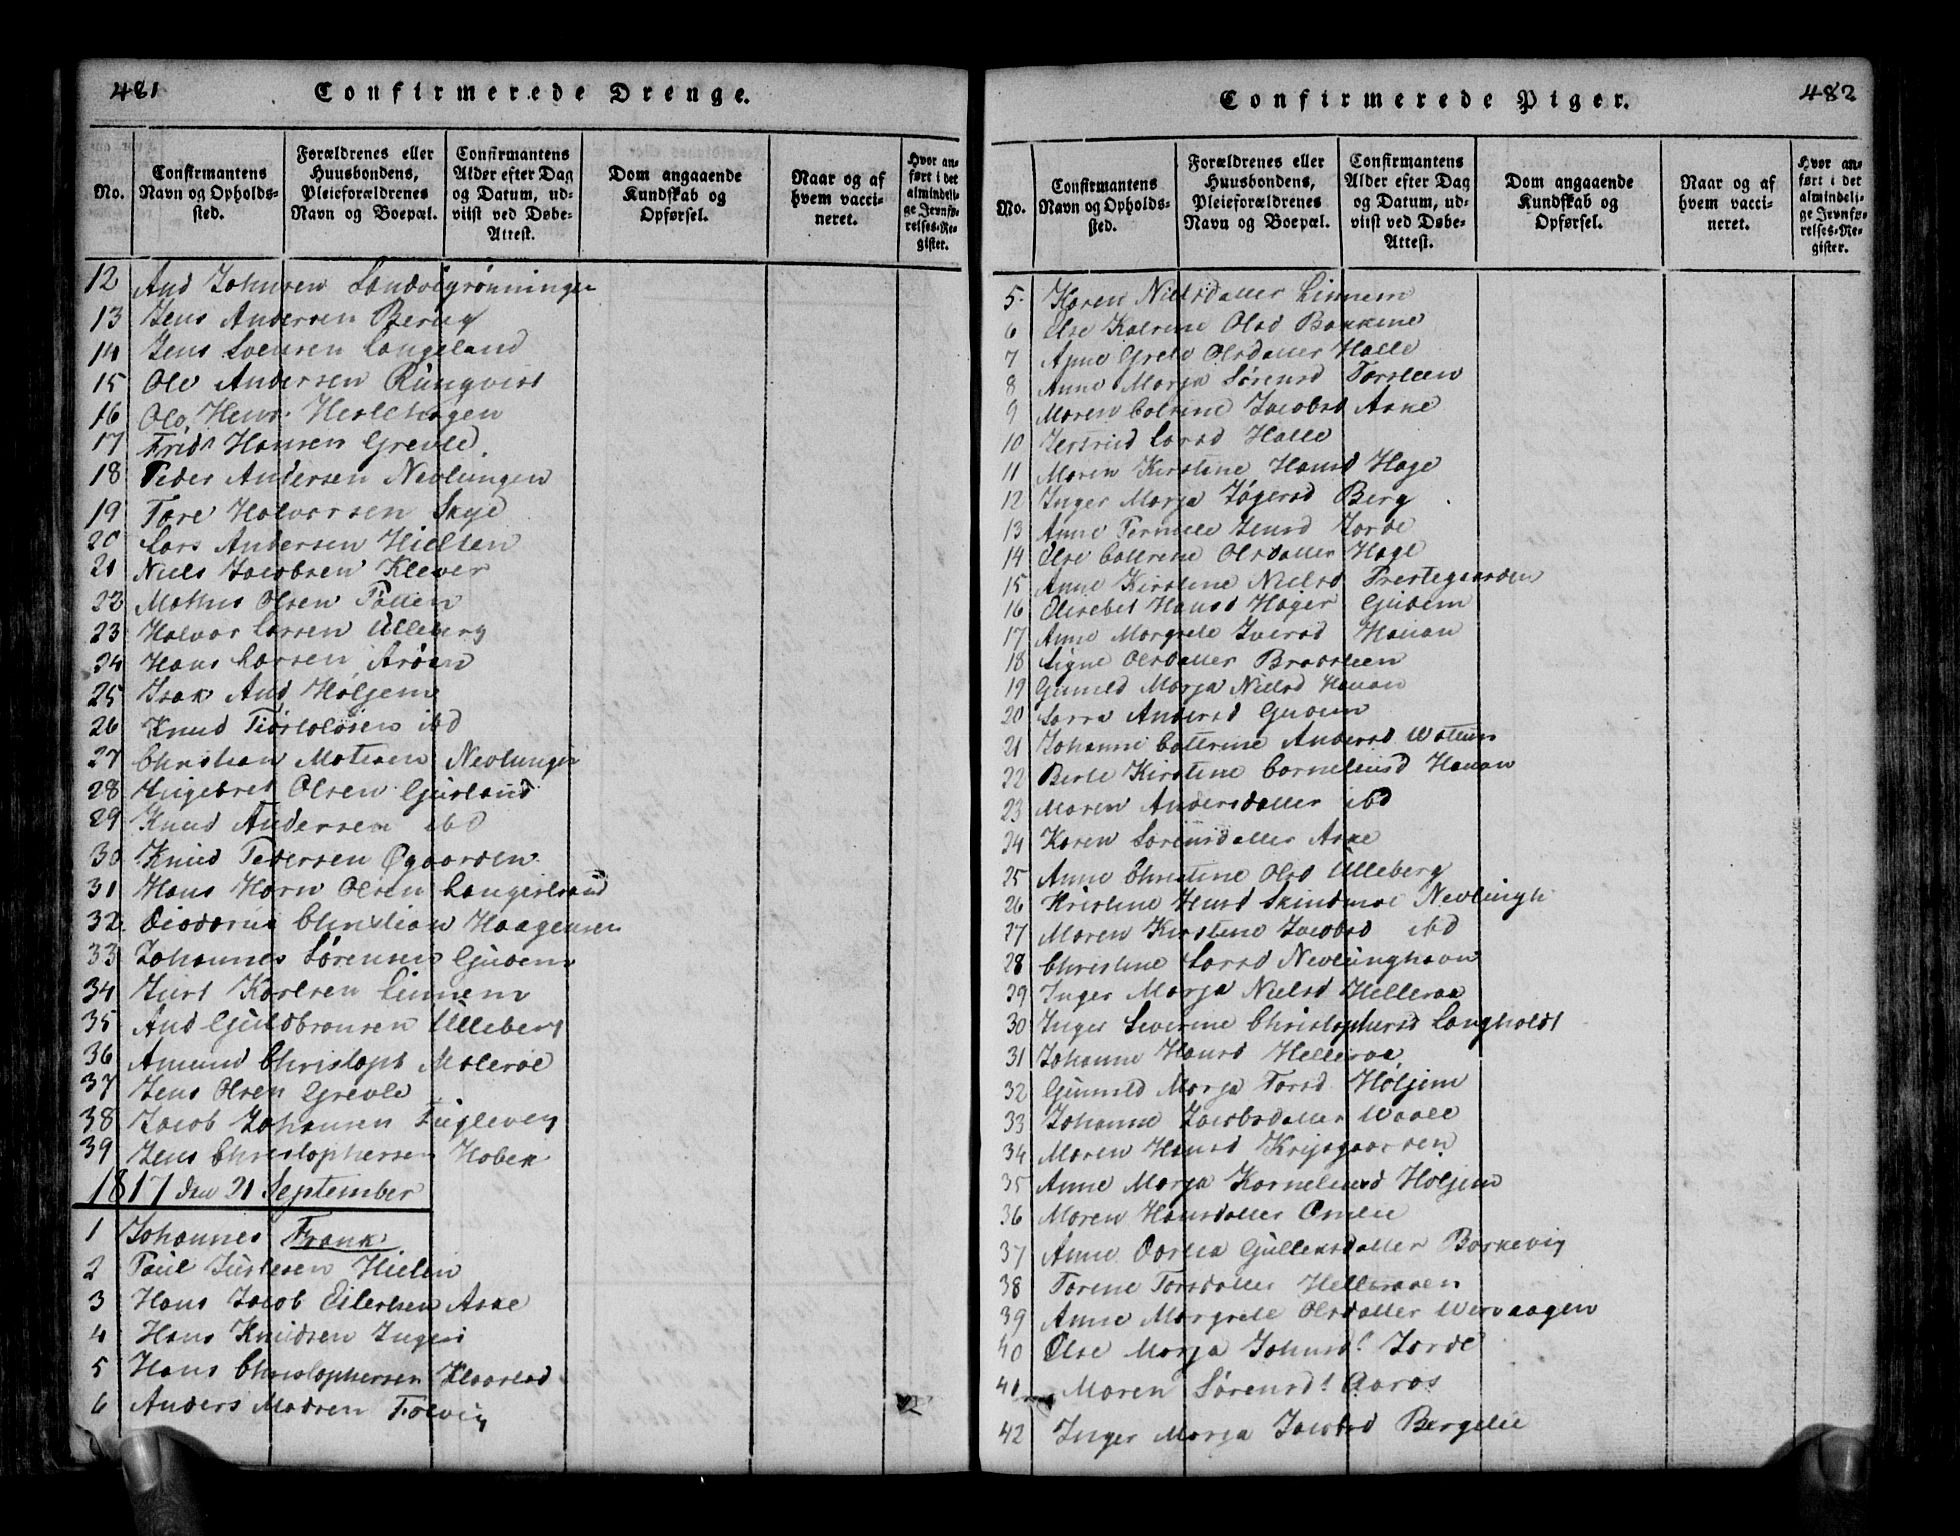 481
Confirmerede Drenge.
No.
Confirmantens Navn og Opholds-sted.
Forældrenes eller Huusbondens, Pleieforældrenes Navn og Boepæl.
Confirmantens Alder efter Dag og Datum, ud-viist ved Døbe-Attest.
Dom angaaende Kundskab og Opførsel.
Naar og af hvem vacci-neret.
Hvor an-ført i det almindeli-ge Jevnfø-relses-Re-gister.
12 And Johnsen
13 Jens Andersen Berug
14 Jens Soensen Langeland
15 Ole Andersen Rungvist
16 Ole Hens
17 Fridr Hansen Grevle
18 Peder Andersen Nevlungen
19 Tore Halvorsen Skye
20 Lars Andersen Hielten
21 Niels Jacobsen Klever
22 Mathis Olsen
23 Halvor Larsen Ulleberg
24 Hans Larsen Arøen
25 Isak And Høljem
26 Knud ibd
27 Christian Matisen Nevlunge
28 Engebret Olsen Gusland
29 Knud Andersen ibd
30 Knud Pedersen Øgaarden
31 Hans Horn Olsen Langestrand
32. Diodorus Christian Haagensen
33 Johannes Sørensen Gudem
34 Just Karlsen Linnem
35 And Guldbransen Ulleberg
36 Amund Christoph Maleröe
37 Jens Olsen Grevle
38 Jacob Johansen Fuglevig
39 Jens Christophersen Hobek
1817 den 21 September
1 Johannes Frank
2 Paul Justesen Hielm
3 Hans Jacob Eilertsen Aske
4 Hans Knudsen
5 Hans Christophersen Kaarlod
6 Anders Madsen Tolvig
Confirmerede Piger.
482
No.
Confirmantens Navn og Opholds-sted.
Forældrenes eller Huusbondens, Pleieforældrenes Navn og Boepæl.
Confirmantens Alder efter Dag og Datum, ud-viist ved Døbe-Attest.
Dom angaaende Kundskab og Opførsel.
Naar og af hvem vacci-neret.
Hvor an-ført i det almindeli-ge Jevnfø-relses-Re-gister.
5. Karen Nielsdatter Linnem
6 Else Katrine Olsd Bakkene
7 Anne Grete Olsdatter Halle
8 Anne Marja Sørensd Torsteen
9 Maren Catrine Jacobsd Aske
10 Jertrud Larsd Halle
11 Maren Kirstine Hansd Hage
12 Inger Marja Jögersd Berg
13 Anne Pernele Jensd Jorde
14 Else Catrene Olsdatter Hage
15 Anne Kirstine Nielsd Prestegaarden
16 Elisebet Hansd Hager Gudem
17 Anne Margrete Iversd Hauan
18 Signe Olsdatter Bradsteen
19 Gunild Marja Nielsd Hauan
20 Sarra Andersd Gudem
21 Johanne Catterine Andersd Watum
22 Berte Kirstine Corneliusd Hauan
23 Maren Andersdatter ibd
24 Karen Sorensdatter Aske
25 Anne Christine Olsd Ulleberg
26 Kristine Hansd Skindmoe Nevlingh
27 Maren Kirstine Jacobsd ibd
28 Christine Larsd Nevlunghavn
29 Inger Marja Nielsd Helleraa
30 Inger Severine Christophersd Langholdt
31 Johanne Hansd Helleraa
32 Gunild Marja Torsd Høljem
33 Johanne Jacobsdatter Waale
34 Maren Hansd Krijsgaarsen
35 Anne Marja Kornelieusd Holjem
36 Maren Hansdatter Omlie
37 Anne Dortea Gullensdatter Barkevig
38 Torene Torsdatter Helleraaen
39 Anne Margrete Olsdatter Wervaagen
40 Else Marja Johnsd. Jorde
41 Maren Sørensd. Aaros
42 Inger Marja Jacobsd Bergelie